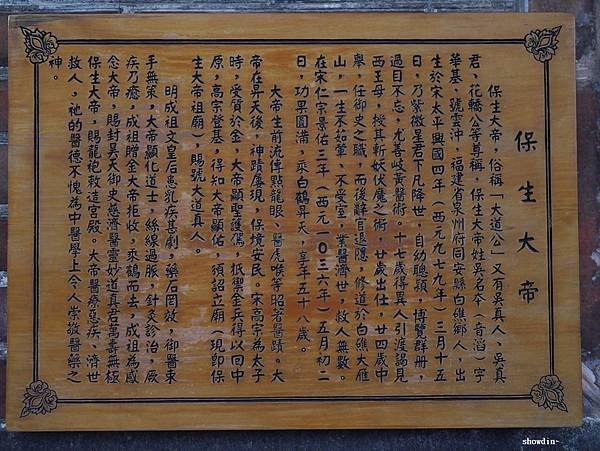 保生大帝
保生大帝，俗稱「大道公」又有吳真人、吳真
君、花轎公等尊稱，保生大帝姓吳名夲（音滔）字
華基，號雲沖，福建省泉州府同安縣白礁鄉人，出
生於宋太平興國四年（西元九七九年）三月十五
日，乃紫微星君下凡降世，自幼聰穎，博覽群冊，
過目不忘，尤善岐黃醫術。十七歲得異人引渡謁見
西王母，授其斬妖伏魔之術，廿歲出仕，廿四歲中
舉，任御史之職，而後辭官退隱，修道於白礁大雁
山，一生不茹葷，不受室，業醫濟世，救人無數。
在宋仁宗景佑三年（西元一０三六年）五月初二
日，功果圓滿，乘白鶴昇天，享年五十八歲。
大帝生前流傳點龍眼、醫虎喉等昭若醫蹟。大
帝在昇天後，神蹟屢現，保境安民。宋高宗為太子
時，受質於金，大帝顯聖護僞，抵禦金兵得以回中
原，高宗登基，得知大帝顯佑，頒詔立廟（現即保
生大帝祖廟），賜號大道真人。
明成祖文皇后患乳疾甚劇，藥石罔效，御醫束
手無策，大帝顯化道士，絲線過脈，針灸診治，厥
疾乃癒，成祖贈金大帝拒收，來鶴而去，成祖為感
念大帝，賜封昊天御史慈濟醫靈妙道真君萬壽無極
保生大帝，賜龍袍敕造宮殿。大帝醫療惡疾、濟世
救人，祂的醫德不愧為中醫學上令人崇敬醫藥之
神。
showdin~